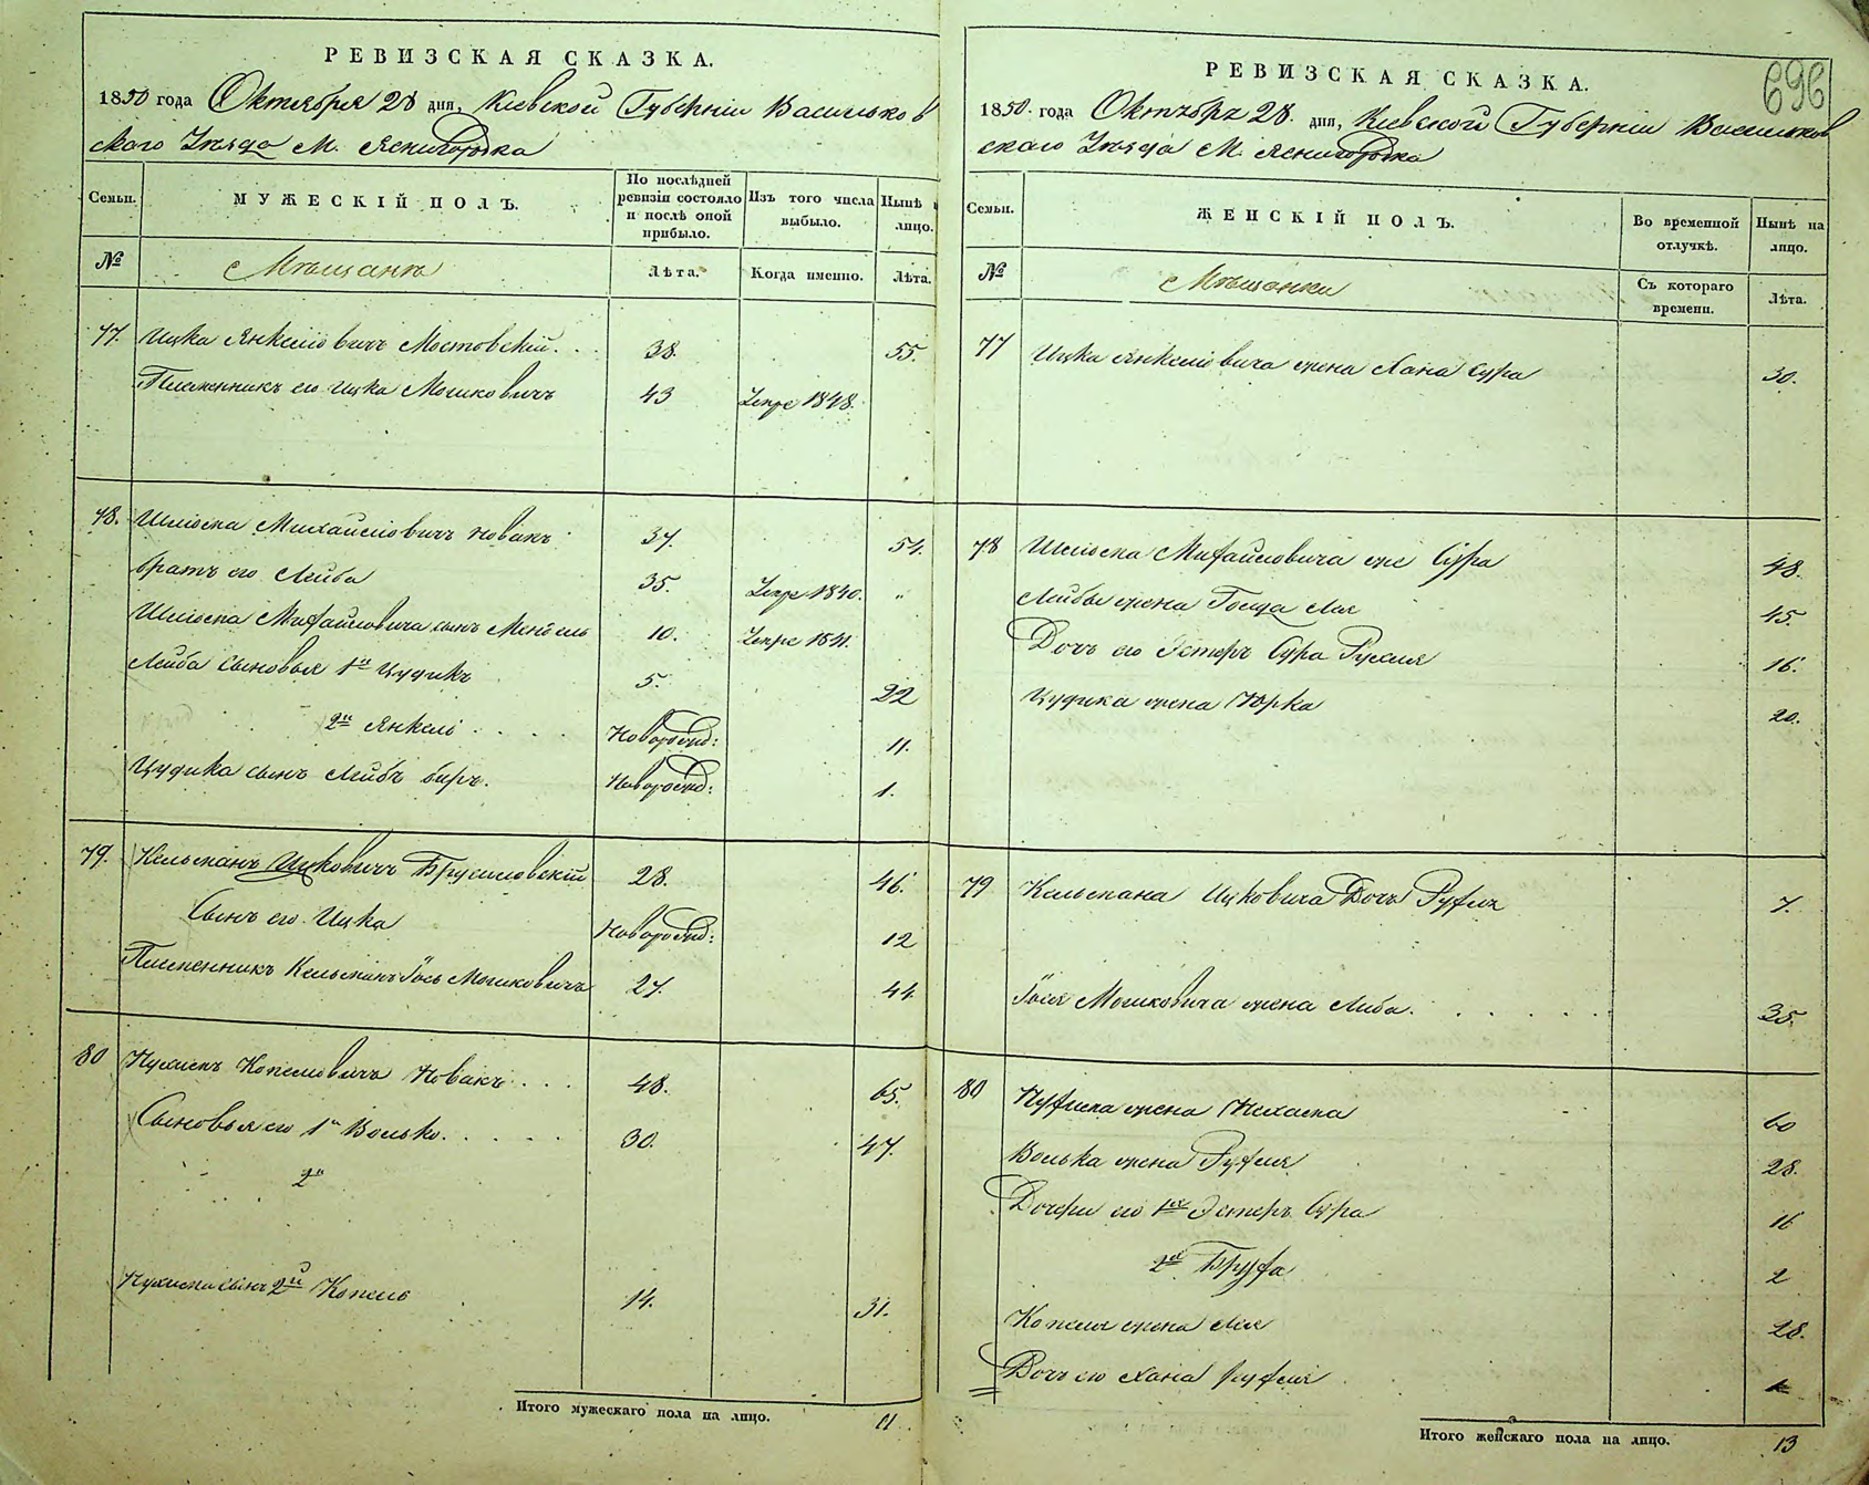 РЕВИЗСКАЯ СКАЗКА.
1850 года Октября 28 дня, Киевской Губерніи Васильков
скаго Уѣзда М. Ясногородка
Семьи. МУЖЕСКІЙ ПОЛЪ. По послѣдней ревизіи состояло и послѣ оной прибыло. Изъ того числа выбыло. Нынѣ на лицо.
№ Мѣщанъ Лѣта. Когда именно. Лѣта.
77. Ицка Янкеліовичъ Мостовскій 38. 55.
Племенникъ его Ицка Мошковичъ 43 Умре 1848.
78. Шліома Михайліовичъ Новакъ 37. 54.
братъ его Лейба 35. Умре 1840. "
Шліома Михайловича сынъ Мендель 10. Умре 1841.
Лейба сыновья 1й Цудикъ 5. 22
2й Янкель Новорожд: 11.
Цудика сынъ Лейбъ беръ. Новорожд: 1.
79. Кельманъ Ицковичъ Брусиловскій 28. 46.
Сынъ его Ицка Новорожд: 12
Племенникъ Кельмана Іось Мошковичъ 27. 44
80 Нухимъ Копеліовичъ Новакъ 48. 65.
Сыновья его 1й Волько 30. 47.
2й
Нухима сынъ 2й Копель 14. 31.
Итого мужескаго пола на лицо. 11
696
РЕВИЗСКАЯ СКАЗКА.
1850 года Октября 28 дня, Кіевской Губерніи Васильков
скаго Уѣзда М. Ясногородка
Семьи. ЖЕНСКІЙ ПОЛЪ. Во временной отлучкѣ. Нынѣ на лицо.
№ Мѣщанки Съ котораго времени. Лѣта.
77 Ицки Янкеліовича жена Хана Сура 30.
78 Шліома Михайловича же Сура 48.
Лейбы жена Лея 45.
Дочь его Эстеръ Сура Рухля 16.
Цудика жена Юрка 20.
79 Кельмана Ицковича Дочь Рухля 7.
Іося Мошковича жена Либа. 35
80 Нухима жена Нехама 60
Волька жена Рухля 28.
Дочери его 1я Эстеръ Сура 16
2я Бруха 2
Копеля жена Лея 28.
Дочь его Хана Рухля
Итого женскаго пола на лицо. 13